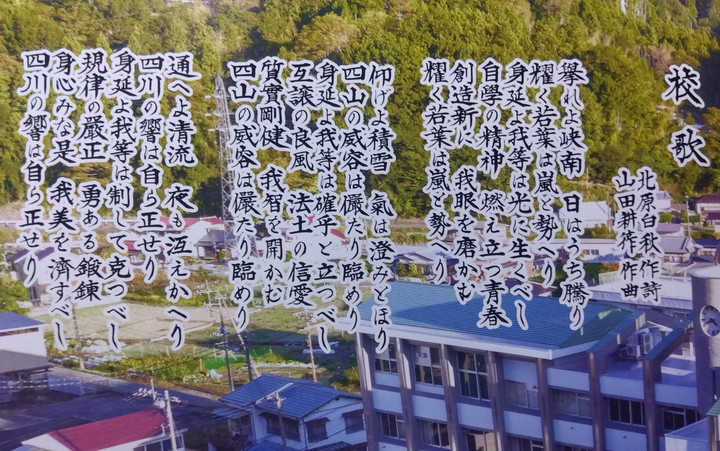 校歌
北原白秋 作詩
山田耕筰 作曲
擧れよ峡南 日はうち騰り
耀く若葉は嵐と勢へり
身延よ我等は光に生くべし
自學の精神 燃え立つ青春
創造新に 我眼を磨かむ
耀く若葉は嵐と勢へり
仰げよ積雪 氣は澄みとほり
四山の威容は儼たり臨めり
身延よ我等は確乎と立つべし
互譲の良風 法土の信愛
質實剛健 我智を開かむ
四山の威容は儼たり臨めり
通へよ清流 夜も冱えかへり
四川の響は自ら正せり
身延よ我等は制して克つべし
規律の厳正 勇ある鍛錬
身心みな是 我美を濟すべし
四川の響は自ら正せり